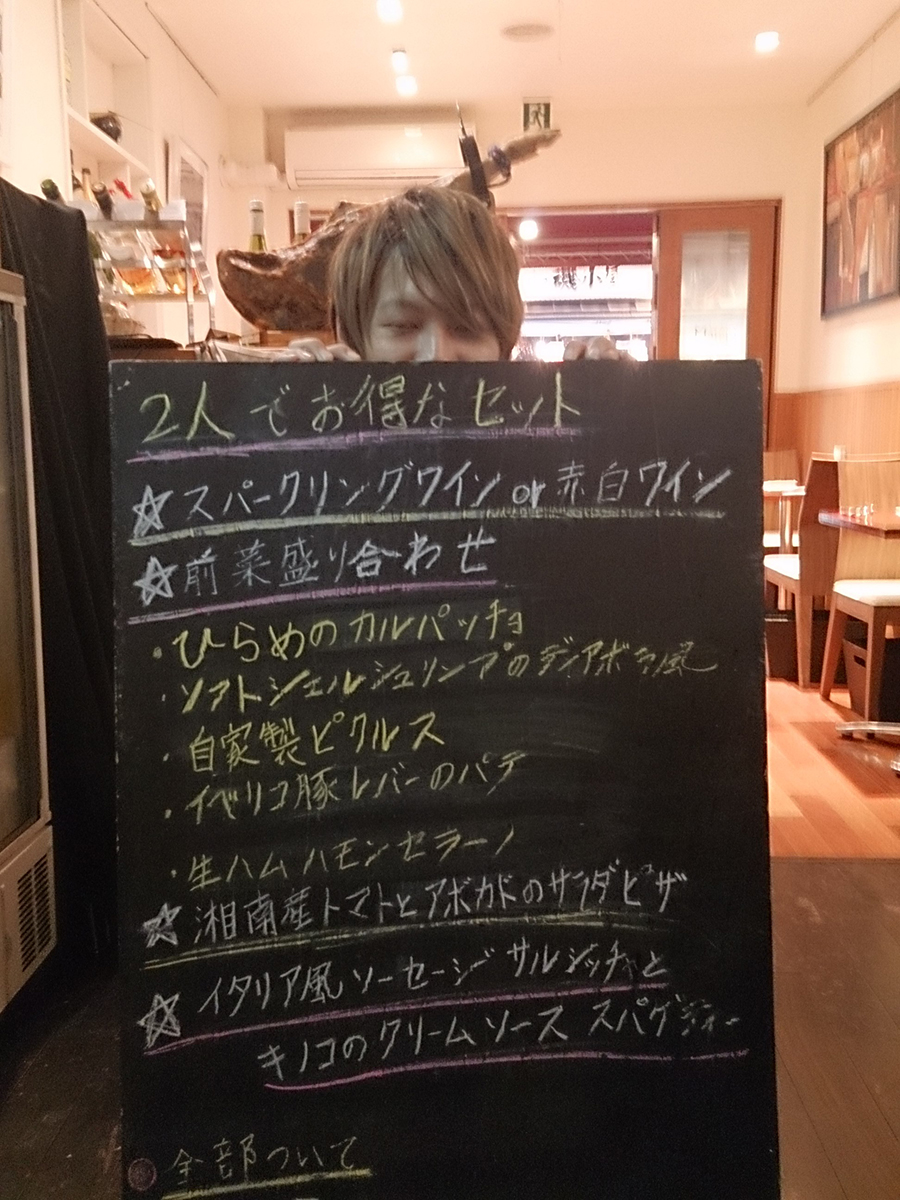 2人でお得なセット
☆スパークリングワイン or 赤白ワイン
☆前菜盛り合わせ
・ひらめのカルパッチョ
・ソフトシェルシュリンプのディアボラ風
・自家製ピクルス
・イベリコ豚レバーのパテ
・生ハム ハモンセラーノ
☆湘南産トマトとアボカドのサラダピザ
☆イタリア風ソーセージ サルシッチャと
キノコのクリームソース スパゲティー
全部ついて